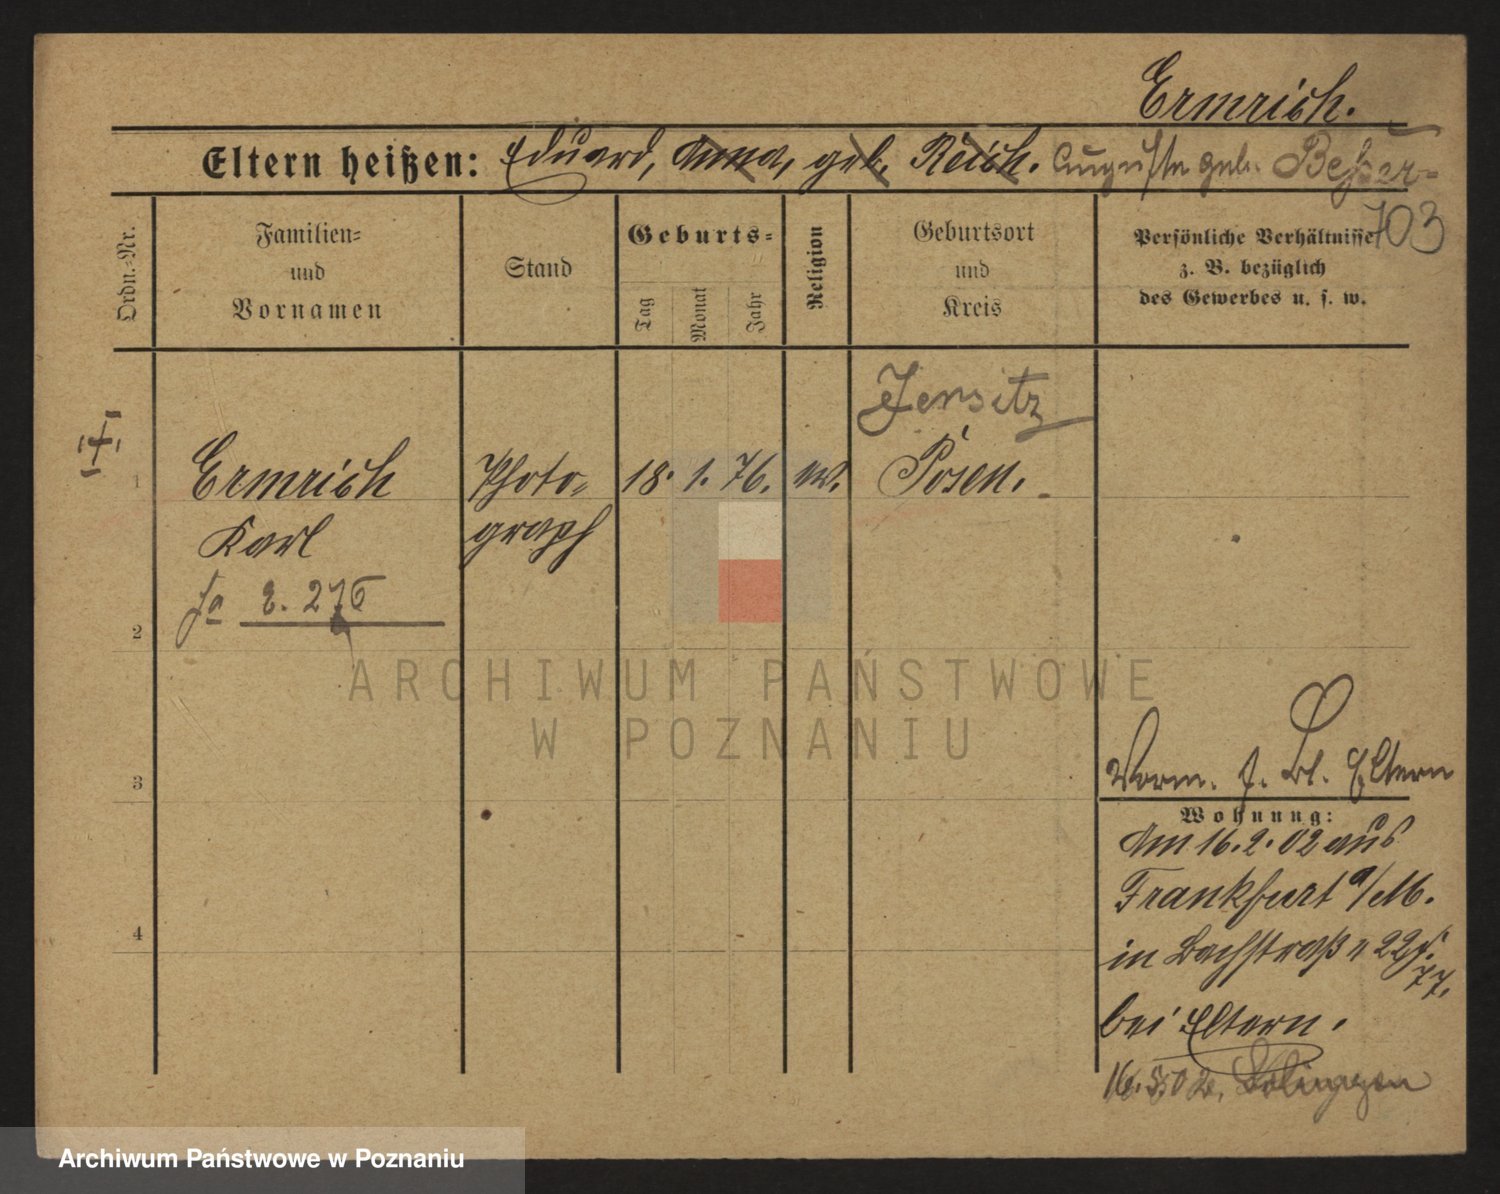 Ermrich.
Eltern heißen: Eduard, Anna, geb. Reich. Auguste geb. Beßer
703
Ordn.-Nr.
Familien-
und
Vornamen
Stand
Geburts-
Tag
Monat
Jahr
Religion
Geburtsort
und
Kreis
Persönliche Verhältnisse
z. B. bezüglich
des Gewerbes u. s. w.
Jersitz
1 Ermrich Photo- 18. 1. 76. Posen.
Karl graph
E. 276
2
3
4
ARCHIWUM PAŃSTWOWE
W POZNANIU
Vorm. f. Bl. Eltern
Wohnung:
Am 16.2.02 aus
Frankfurt a/M.
in Bachstraß 22
77.
bei Eltern.
Solingen
Archiwum Państwowe w Poznaniu